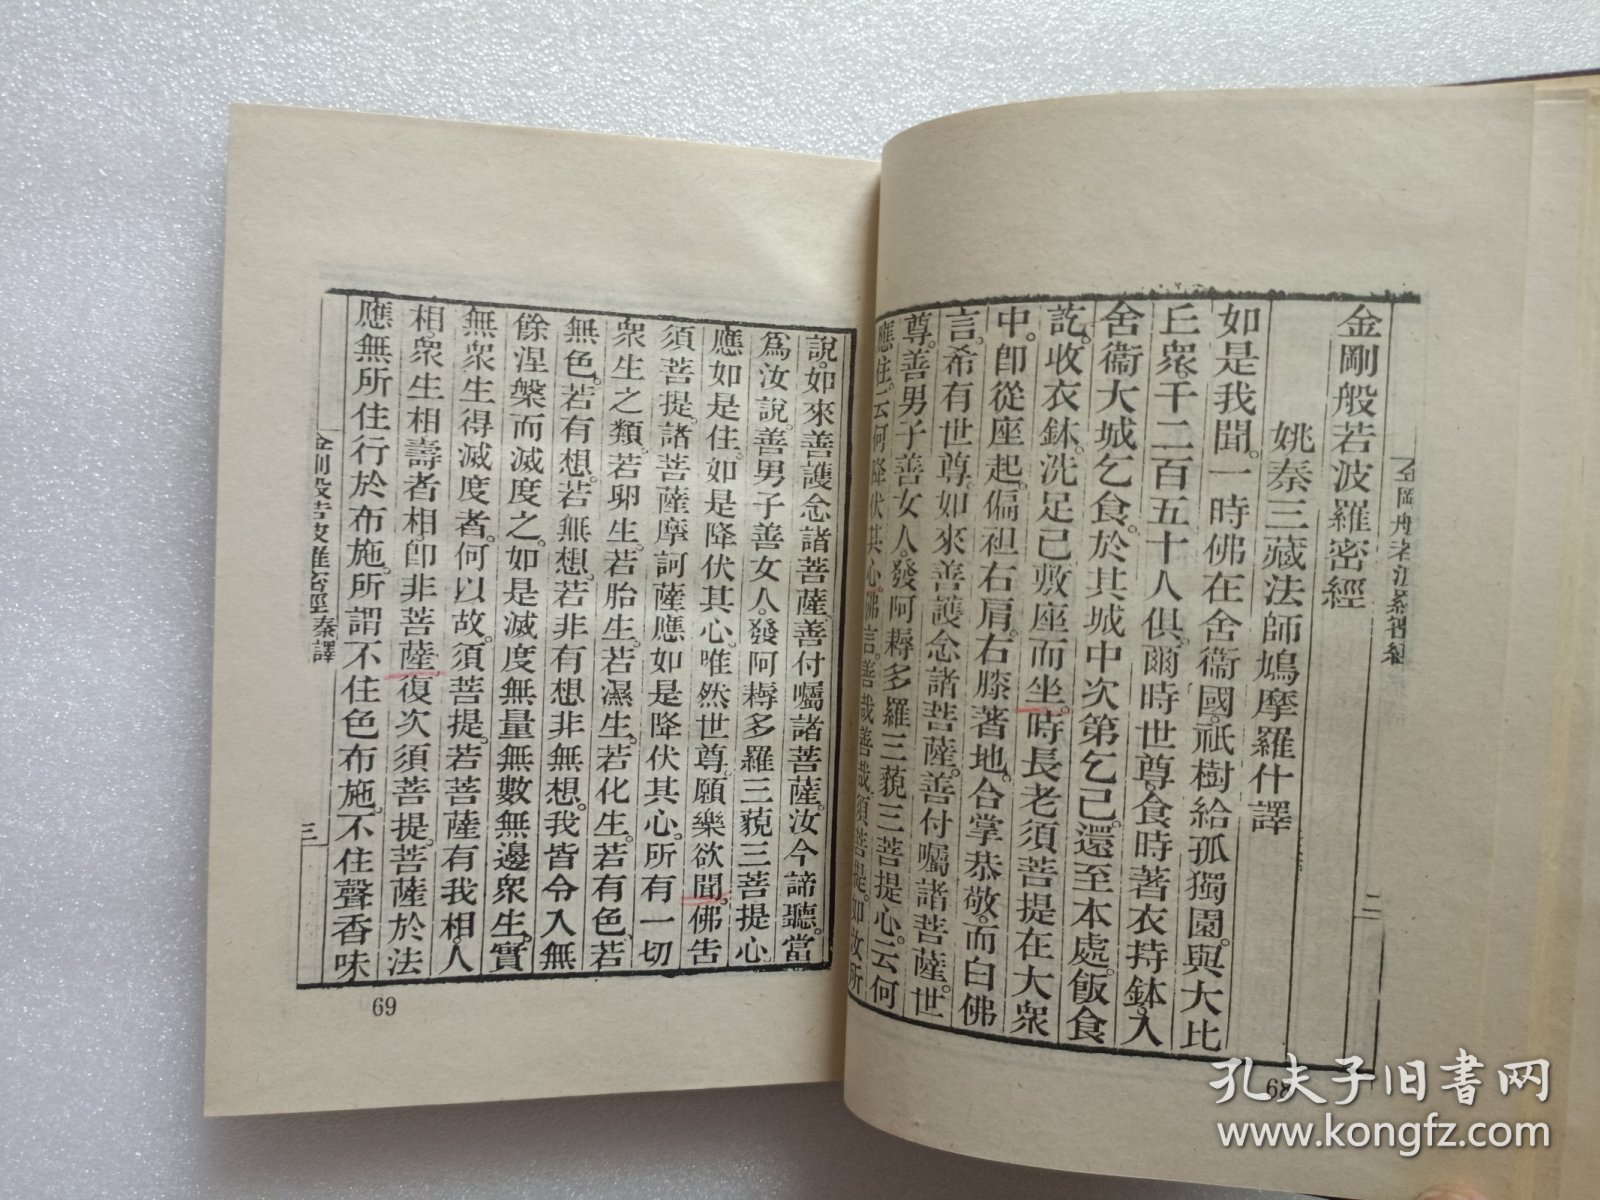 金剛般若波羅密經
二
金剛般若波羅密經
姚秦三藏法師鳩摩羅什譯
如是我聞。一時佛在舍衞國。祇樹給孤獨園。與大比
丘衆。千二百五十人俱。爾時世尊。食時著衣持鉢。入
舍衞大城乞食。於其城中次第乞已。還至本處。飯食
訖。收衣鉢。洗足已敷座而坐。時長老須菩提在大衆
中。卽從座起。偏袒右肩。右膝著地。合掌恭敬。而白佛
言。希有世尊。如來善護念諸菩薩。善付囑諸菩薩。世
尊。善男子善女人。發阿耨多羅三藐三菩提心。云何
應住。云何降伏其心。佛言。善哉善哉。須菩提。如汝所
68
說。如來善護念諸菩薩。善付囑諸菩薩。汝今諦聽。當
爲汝說。善男子善女人。發阿耨多羅三藐三菩提心。
應如是住。如是降伏其心。唯然世尊。願樂欲聞。佛吿
須菩提。諸菩薩摩訶薩應如是降伏其心。所有一切
衆生之類。若卵生。若胎生。若濕生。若化生。若有色。若
無色。若有想。若無想。若非有想非無想。我皆令入無
餘涅槃而滅度之。如是滅度無量無數無邊衆生。實
無衆生得滅度者。何以故。須菩提。若菩薩有我相。人
相。衆生相壽者相。卽非菩薩。復次須菩提。菩薩於法
應無所住行於布施。所謂不住色布施。不住聲香味
金剛般若波羅密經 秦譯
三
69
孔夫子旧书网
www.kongfz.com